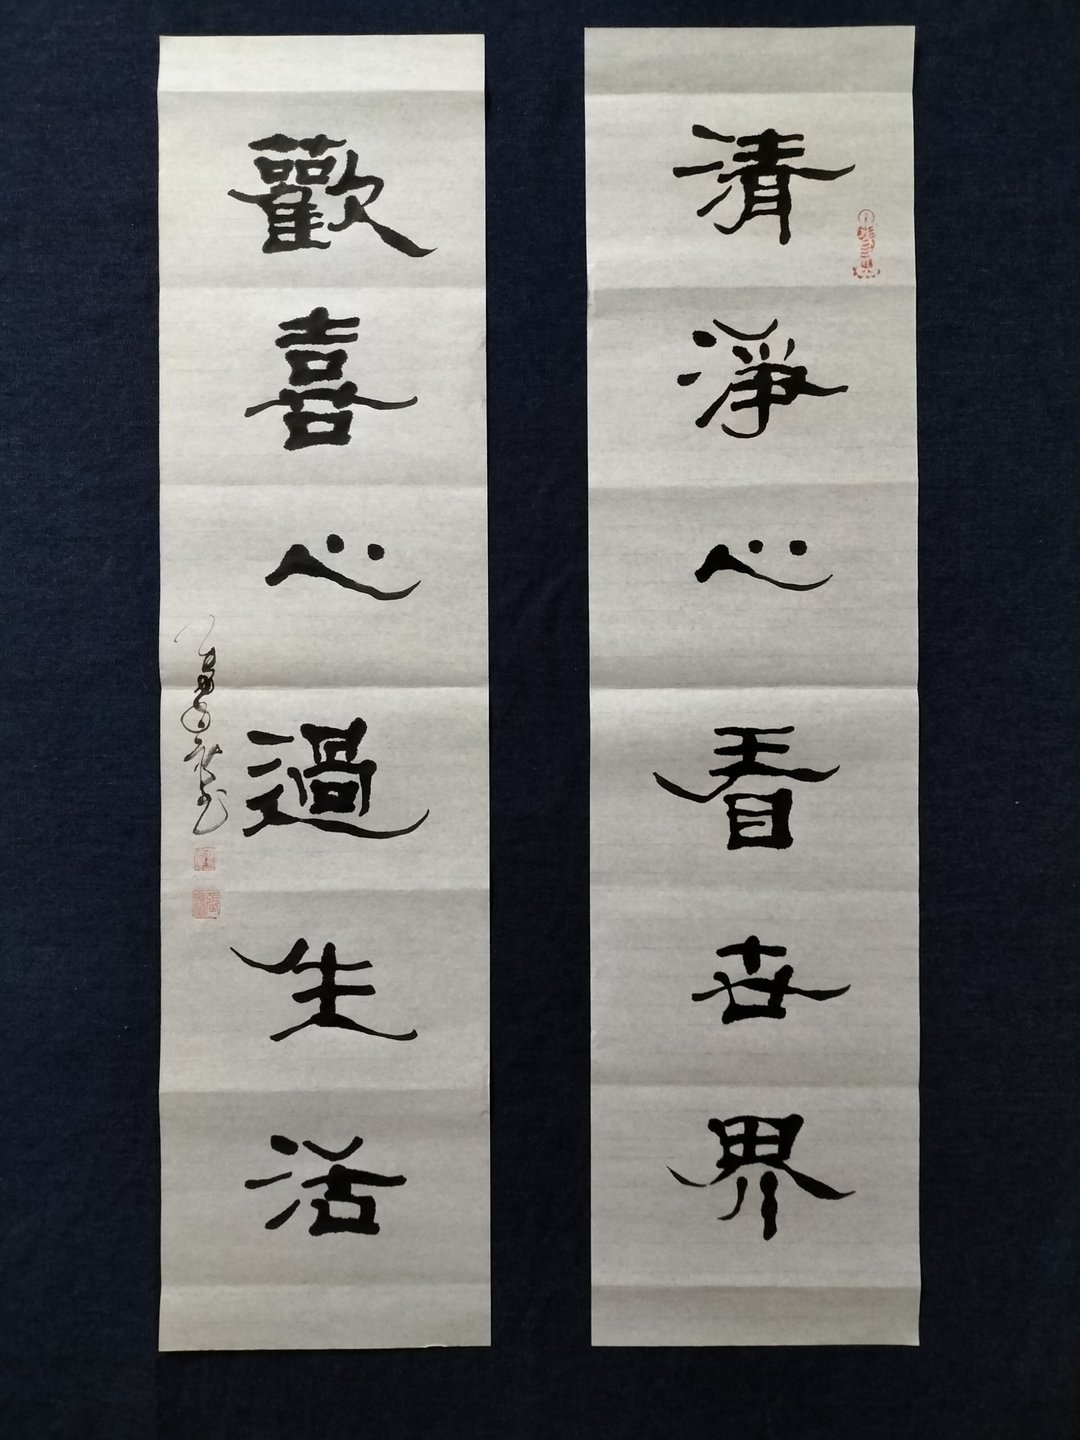 清淨心看世界
歡喜心過生活